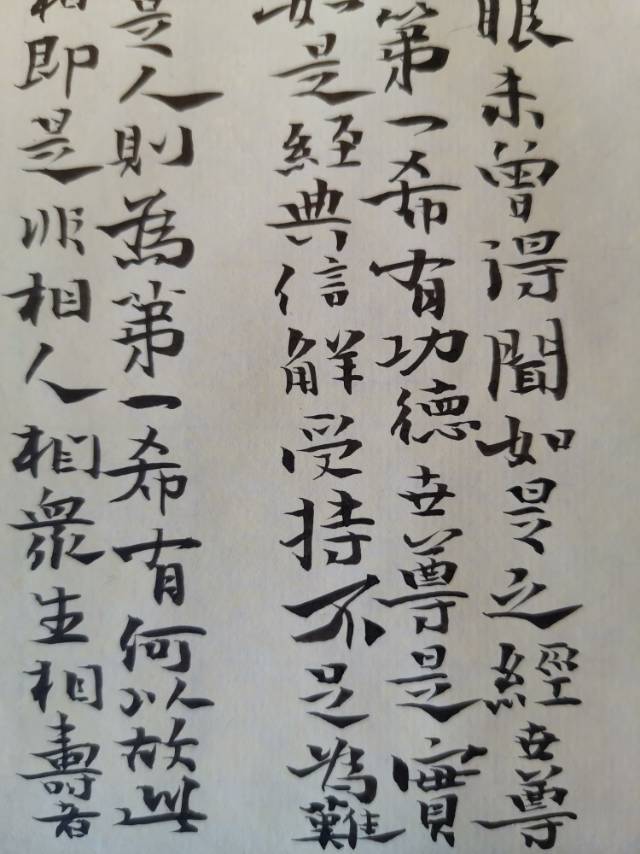 眼未曾得聞如是之經世尊
第一希有功德世尊是實
如是經典信解受持不足為難
是人則為第一希有何以故此
相即是非相人相眾生相壽者